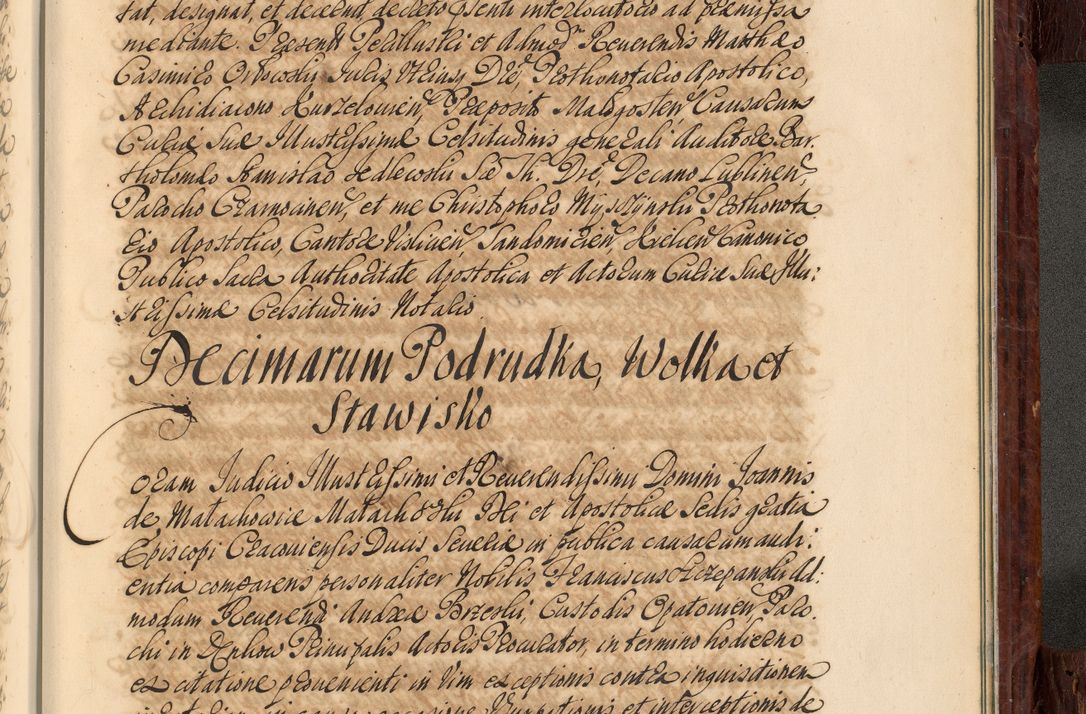 tat, designat, et decernit, decreto psenti interlocutorio ad praemissa
mediante. Praesentt Perillustri et Admodm Reuerendis Matthæo
Casimiro Orłowski Juris Vtriusq Dre, Prothonotario Apostolico,
Archidiacono Kurzelouien, Praeposito Małogosten, Causarum
Curiæ Suæ Illustrissimæ Celsitudinis generali Auditore Bar:
tholomæo Stanislao Jedlewski Sæ Th. Dre, Decano Lublinen
Parocho Czarnocinen, et me Christophoro Myszynski Prothonota
rio Apostolico, Cantore Vislicien Sandomirien Kielcen Canonico
Publico Sacra Authoritate Apostolica et Actorum Curiæ Suæ Illu:
strissimæ Celsitudinis Notario.
Decimarum Podrudka, Wolka et
Stawisko
Coram Judicio Illustrissimi et Reuerendissimi Domini Joannis
de Małachowice Małachowski Dei et Apostolicæ Sedis gratia
Episcopi Cracouiensis Ducis Seueriæ in publica causarum audi:
entia comparens personaliter Nobilis Franciscus Szczepanski Ad:
modum Reuerendi Andreæ Brzeski, Custodis Opatouien, Paro
chi in Denkow Principalis Actoris Procurator, in termino hodierno
ex citatione proueniente in Vim exceptionis contra inquisitionem
in causa occasione et interceptionis de